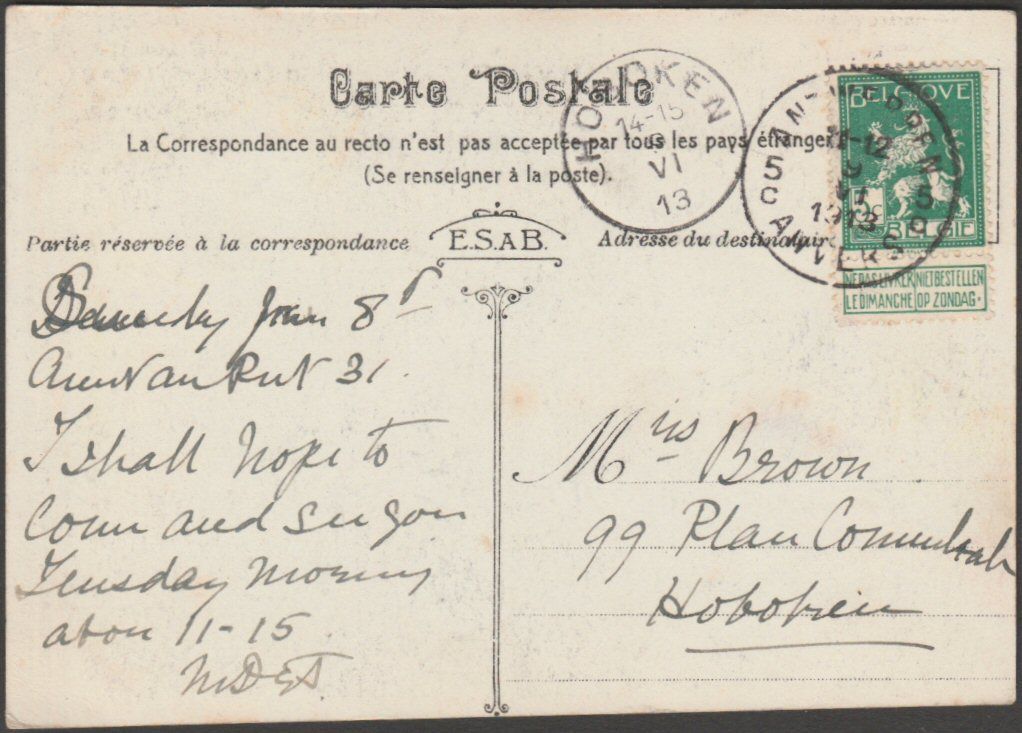 Carte Postale
La Correspondance au recto n'est pas acceptée par tous les pays étrangers
(Se renseigner à la poste).
Partie réservée à la correspondance
E.S.A.B.
Adresse du destinataire
HOBOKEN
14-15
9
VI
13
ANTWERPEN
11-12
5 9 5
VI
1913
C ANVERS C
BELGIQUE
5c
BELGIË
NE PAS LIVRER LE DIMANCHE
NIET BESTELLEN OP ZONDAG
Sunday June 8th
31.
I shall hope to
come and see you
Teusday morning
abou 11-15
Mrs Brown
99 Plan
Hoboken